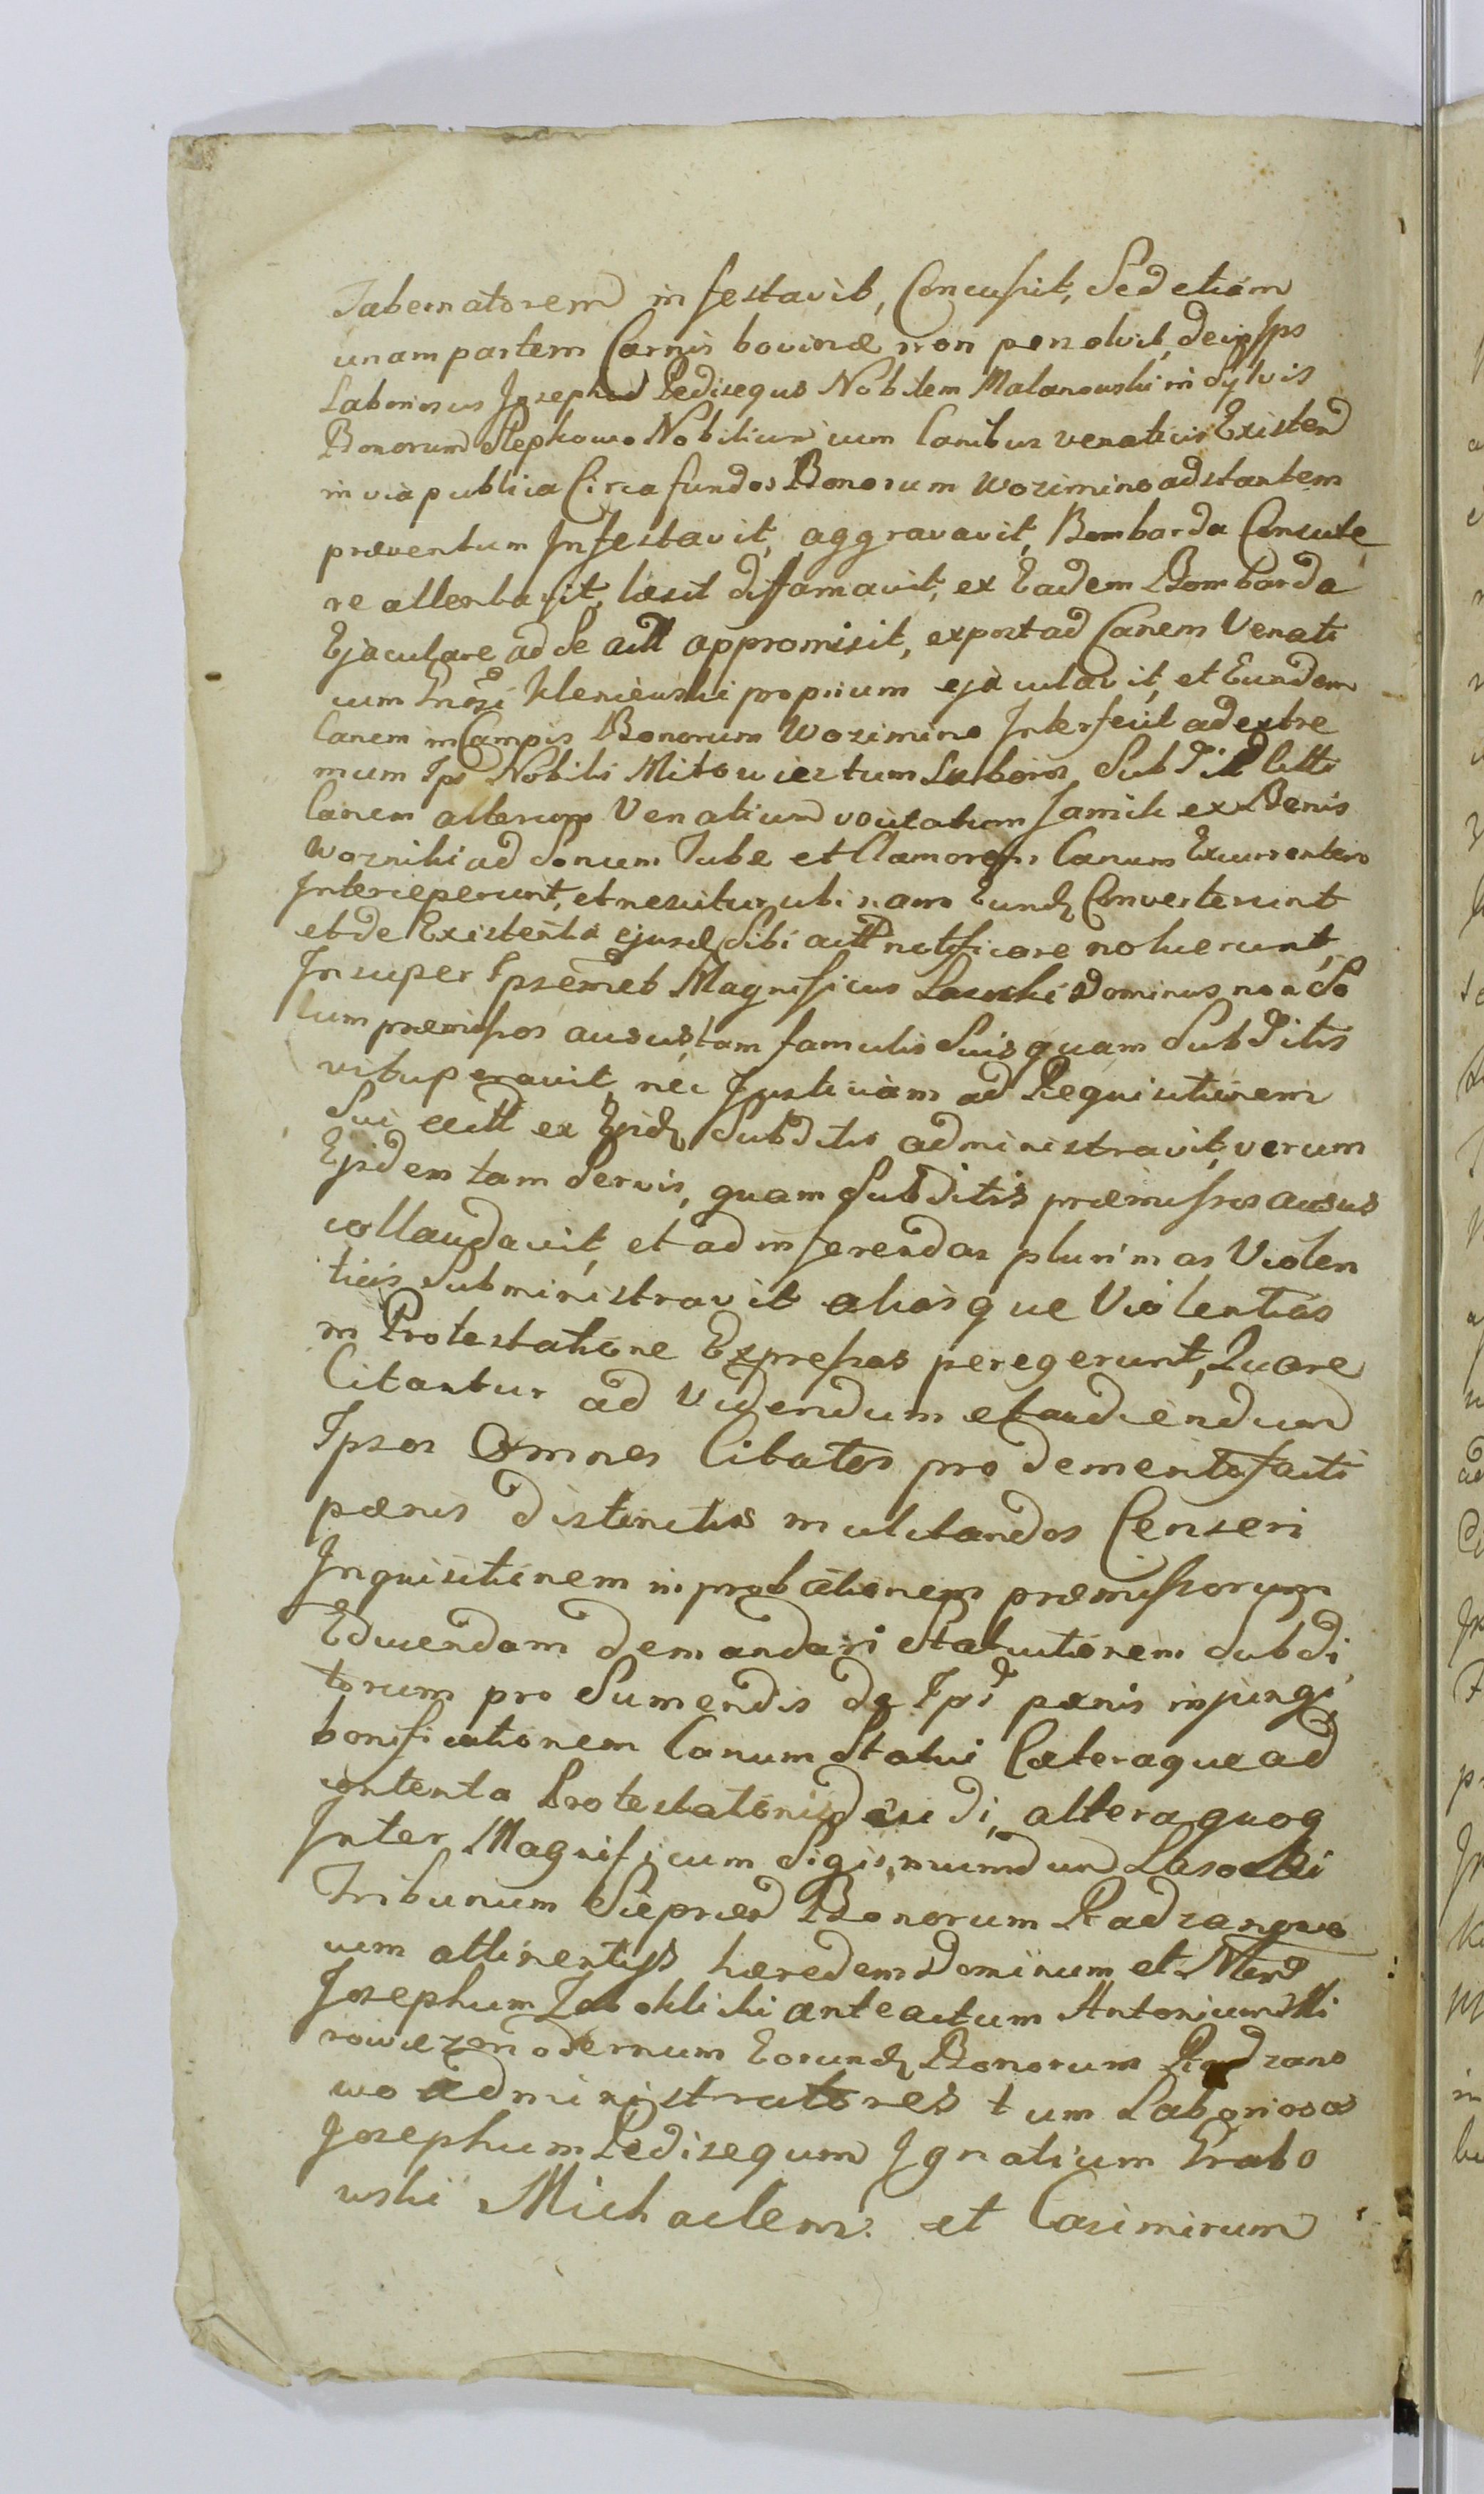 Tabernatorem infestavit, Concussit, Sed etiam
unam partem Carnis bovinæ non persolvit, dein Ips
Laboriosus Josephus Pedisequs Nobilem Malanowski in Sylvis
Bonorum Slepkowo Nobilium cum Canibus venaticis Existen
in via publica Circa fundos Bonorum Wozimino adstantem
præventum Infestavit, aggravavit, Bombarda Concute
re attentavit, læsit diffamavit, ex Eadem Bombarda
Ejaculare ad Se actt appromisit, expost ad Canem Venati
cum Gnosi Kleniewski proprium ejaculavit, et Eundem
Canem in Campis Bonorum Wozimino Interfecit ad extre
mum Ips Nobilis Mirowicz tum Laborios Subditi Citti
Canem alterum Venaticum vocitatum ex Bonis
Wozniki ad Sonum Tubæ et Clamorem Canum Excurrentem
Interceperunt, et nescitur ubinam Eund Converterunt
et de Existentia ejusd Sibi actt notificare noluerunt,
Insuper Ipsemet Magnificus Lasocki Dominus non So
lum præmissos ausus, tam famulis Suis quam Subditis
vituperavit, nec Justiciam ad Requisitionem
Sui actt ex Eisd Subditis administravit, verum
Eisdem tam Servis, quam Subditis præmissos ausus
collaudavit, et ad inferendas plurimas Violen
tias Subministravit aliasque Violentias
in Protestatione Expressas peregerunt, Quare
Citantur ad Videndum et audiendum
Ipsos Omnes Citatos pro demerito facti
pænis distinctis mulctandos Censeri
Inquisitionem in probationem præmissorum
Educendam demandari Statuitionem Subdi
torum pro Sumendis de Ips pænis injungi,
bonificationem Canum Statui Cæteraque ad
contenta Protestationis decidi, altera quoq
Inter Magnificum Sigismundum Lasocki
Tribunum Sieprcs Bonorum Radzanowo
cum attinentiis hæredem Dominum et
Josephum Zaboklicki anteactum Antonium Mi
rowicz modernum Eorund Bonorum Radzano
wo administratores tum Laboriosos
Josephum Pedisequm Ignatium Grabo
wski Michaelem et Casimirum